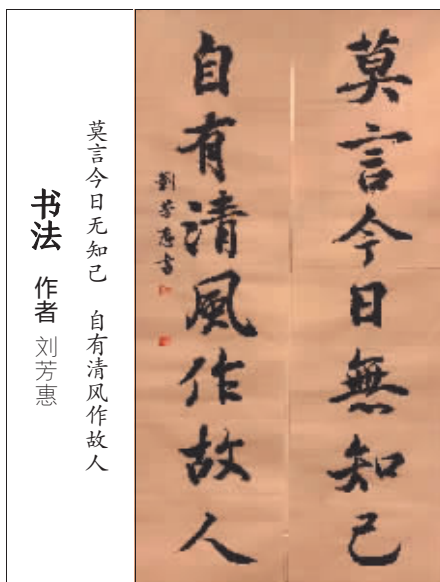 莫言今日無知己
自有清風作故人
劉芳惠書
莫言今日无知己 自有清风作故人
书法 作者 刘芳惠